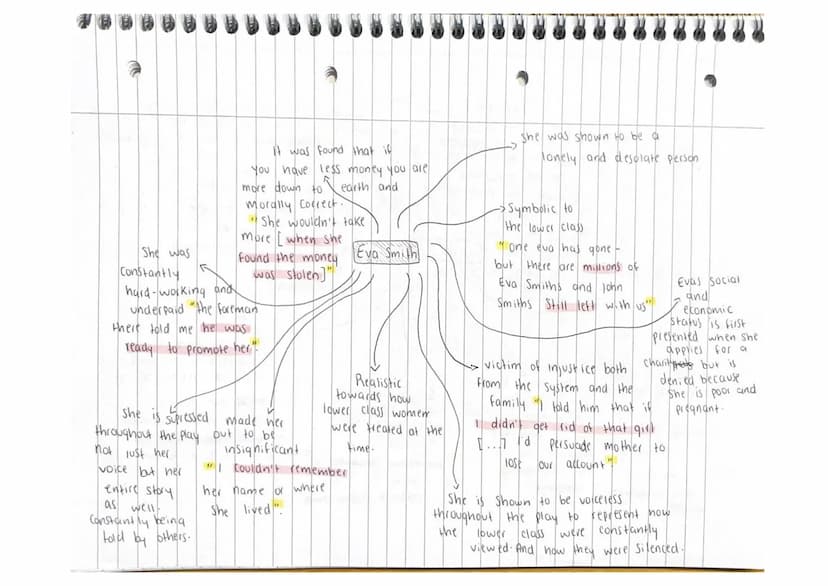 Eva Smith
It was found that if
you have less money you are
more down to earth and
morally correct.
"She wouldn't take
more [when she
found the money
was stolen]"
She was shown to be a
lonely and desolate person
Symbolic to
the lower class
"One eva has gone -
but there are millions of
Eva Smiths and John
Smiths still left with us"
Evas social
and
economic
status is first
presented when she
applies for a
charity but is
denied because
she is poor and
pregnant.
victim of injustice both
from the system and the
family "I told him that if
I didn't get rid of that girl
[...] I'd persuade mother to
lose our account"
She is shown to be voiceless
throughout the play to represent how
the lower class were constantly
viewed. And how they were silenced.
Realistic
towards how
lower class women
were treated at the
time.
made her
out to be
insignificant
"I couldn't remember
her name or where
she lived".
She is supressed
throughout the play
not just her
voice but her
entire story
as well.
Constantly being
told by others.
She was
constantly
hard-working and
underpaid "the foreman
there told me he was
ready to promote her".